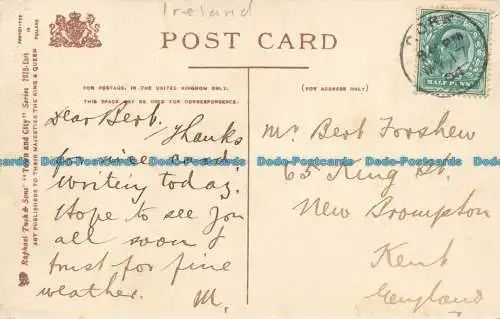 Ireland
POST CARD
FOR POSTAGE, IN THE UNITED KINGDOM ONLY,
THIS SPACE MAY BE USED FOR CORRESPONDENCE.
(FOR ADDRESS ONLY)
Raphael Tuck & Sons' "Town and City" Series 2015
ART PUBLISHERS TO THEIR MAJESTIES THE KING & QUEEN
CORK
HALF PENNY
Dear Bert. Thanks
for nice card.
Writing today.
Hope to see you
all soon &
trust for fine
weather. M.
Mr Bert Forshew
65 King St.
New Brompton
Kent
England
Dodo-Postcards.com